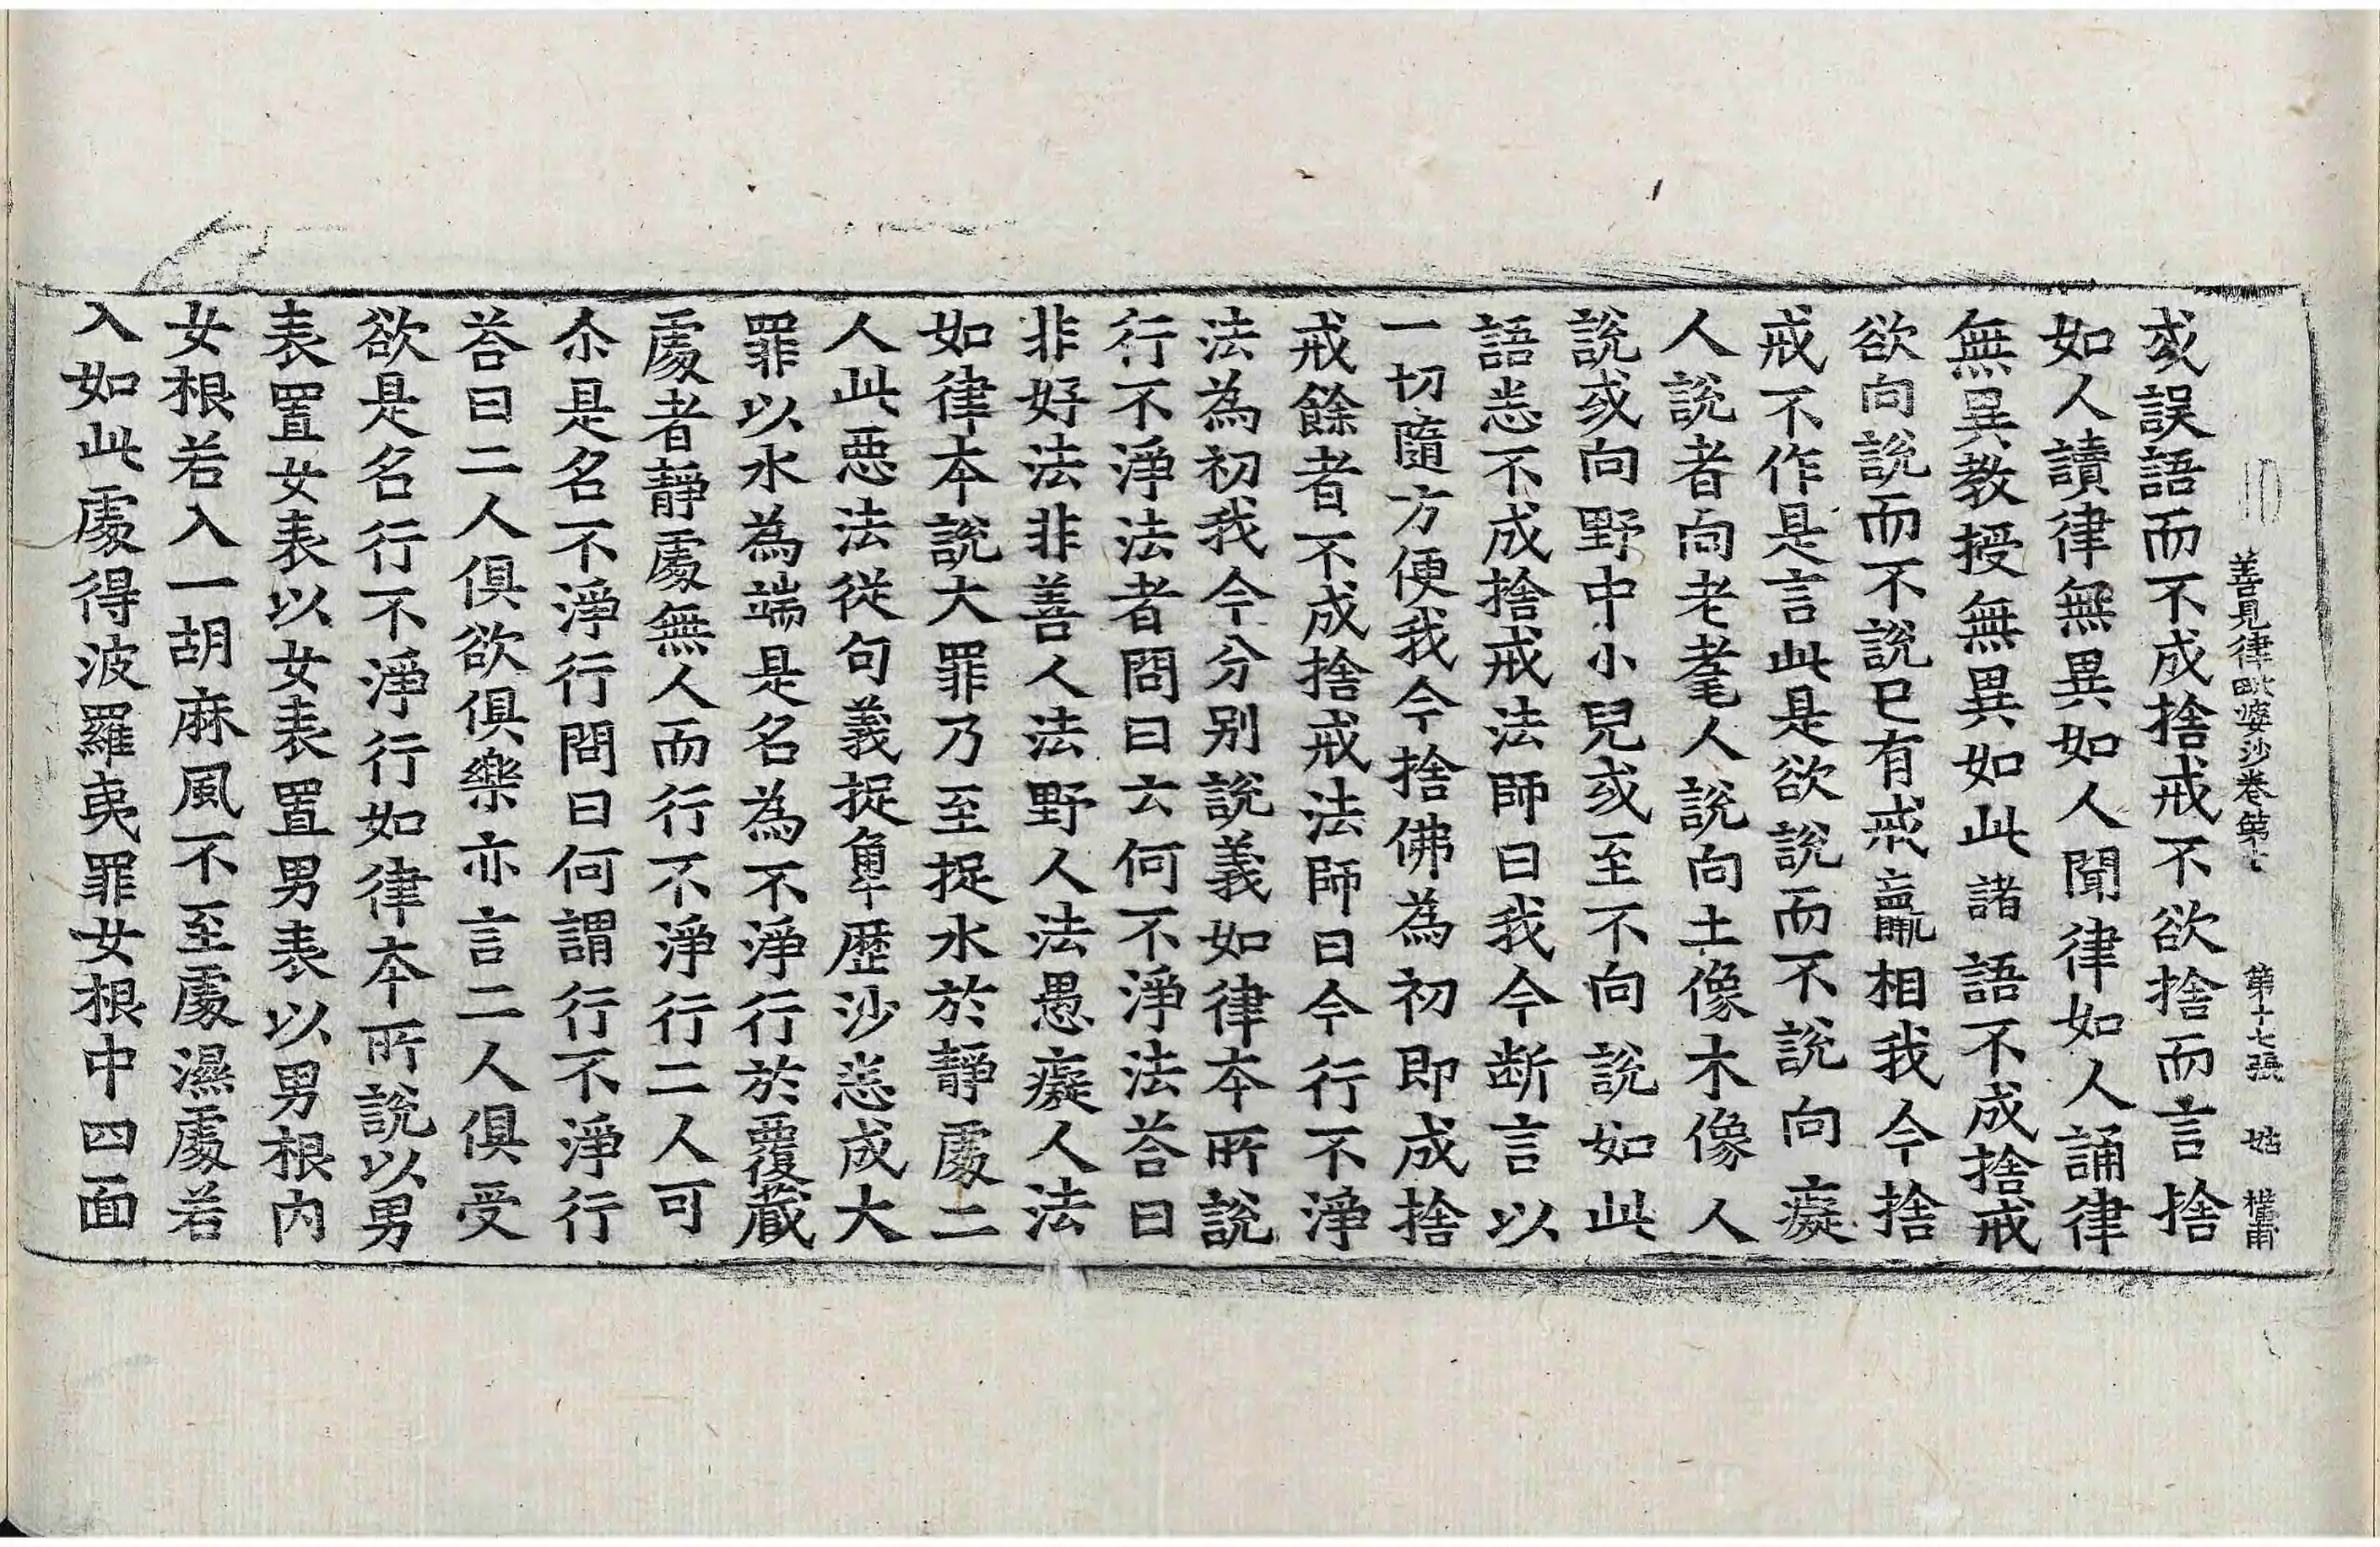 善見律毗婆沙卷第七　第十七張　姑
或誤語而不成捨戒不欲捨而言捨
如人讀律無異如人聞律如人誦律
無異教授無異如此諸語不成捨戒
欲向說而不說已有戒羸相我今捨
戒不作是言此是欲說而不說向癡
人說者向老耄人說向土像木像人
說或向野中小兒或至不向說說如此
語悉不成捨戒法師曰我今断言以
一切隨方便我今捨佛為初即成捨
戒餘者不成捨戒法師曰今行不淨
法為初我今分別說義如律本所說
行不淨法者問曰云何不淨法荅曰
非好法非善人法野人法愚癡人法
如律本說大罪乃至捉水於靜處二
人此惡法從句義捉畢歷沙悉成大
罪以水為端是名為不淨行於覆藏
處者靜處無人而行不淨行二人可
尒是名不淨行問曰何謂行不淨行
荅曰二人俱欲俱樂亦言二人俱受
欲是名行不淨行如律本所說以男
表置女表以女表置男表以男根內
女根若入一胡麻風不至處濕處若
入如此處得波羅夷罪女根中四面